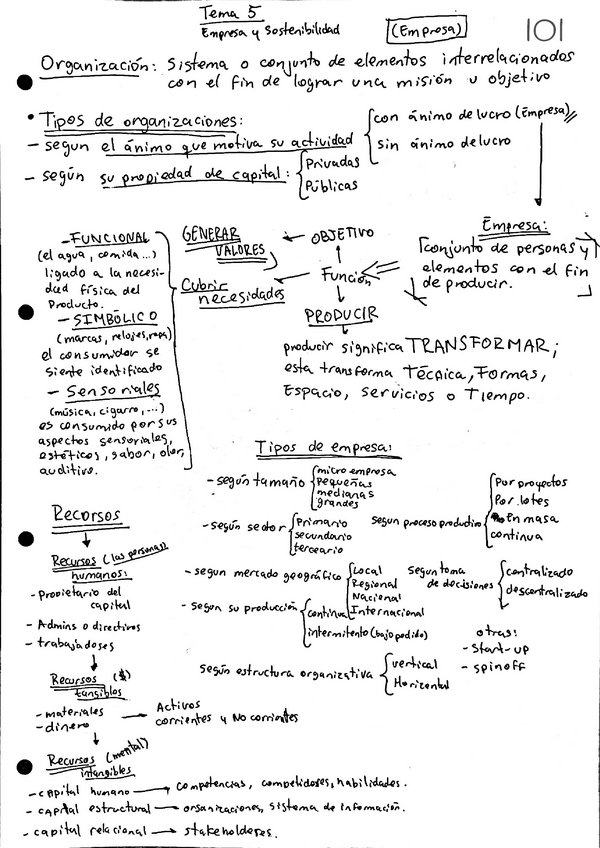 Tema 5
Empresa y Sostenibilidad
(Empresa)
101
Organización: Sistema o conjunto de elementos interrelacionados
con el fin de lograr una misión u objetivo
• Tipos de organizaciones:
- segun el ánimo que motiva su actividad
con ánimo de lucro (Empresa)
sin ánimo de lucro
- según su propiedad de capital:
Privadas
Públicas
Empresa:
conjunto de personas y
elementos con el fin
de producir.
Función
OBJETIVO
GENERAR
VALORES
Cubrir
necesidades
PRODUCIR
producir significa TRANSFORMAR;
esta transforma Técnica, Formas,
Espacio, servicios o Tiempo.
- FUNCIONAL
(el agua, comida...)
ligado a la necesi-
dad física del
Producto.
- SIMBÓLICO
(marcas, relojes, ropa)
el consumidor se
siente identificado
- Sensoriales
(música, cigarro, ...)
es consumido por sus
aspectos sensoriales,
estéticos, sabor, olor,
auditivo.
Tipos de empresa:
- según tamaño
micro empresa
Pequeñas
medianas
grandes
- según sector
Primario
secundario
terceario
segun proceso productivo
Por proyectos
Por lotes
En masa
continua
- segun mercado geográfico
Local
Regional
Nacional
Internacional
segun toma
de decisiones
centralizado
descentralizado
- segun su producción
continua
intermitente (bajo pedido)
otras:
- Start-up
- spinoff
según estructura organizativa
vertical
Horizental
Recorsos
Recursos (las personas)
humanos:
- propietario del
capital
- Admins o directivos
- trabajadores
Recursos ($)
tangibles
- materiales
- dinero
Activos
corrientes y No corrientes
Recursos (mental)
intangibles
- capital humano → competencias, competidores, habilidades.
- capital estructural → organizaciones, sistema de información.
- capital relacional → stakeholderes.